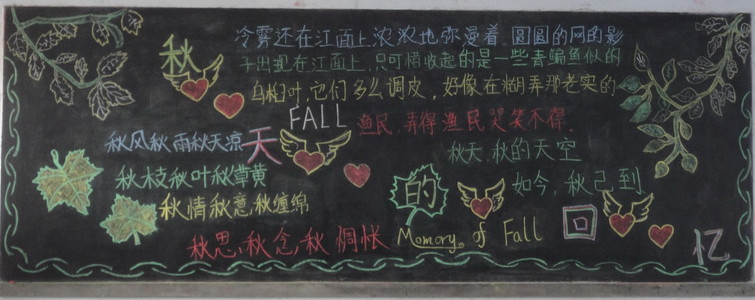 秋
冷雾还在江面上,浓浓地弥漫着.圆圆的网的影
子出现在江面上,只可惜收起的是一些青鳊鱼似的
乌桕叶,它们多么调皮,好像在糊弄那老实的
FALL
渔民,弄得渔民哭笑不得.
秋风秋雨秋天凉
天
秋天,秋的天空
秋枝秋叶秋草黄
的
如今,秋己到
秋情秋意,秋缠绵
回
忆
秋思,秋念,秋惆怅
Momory of Fall